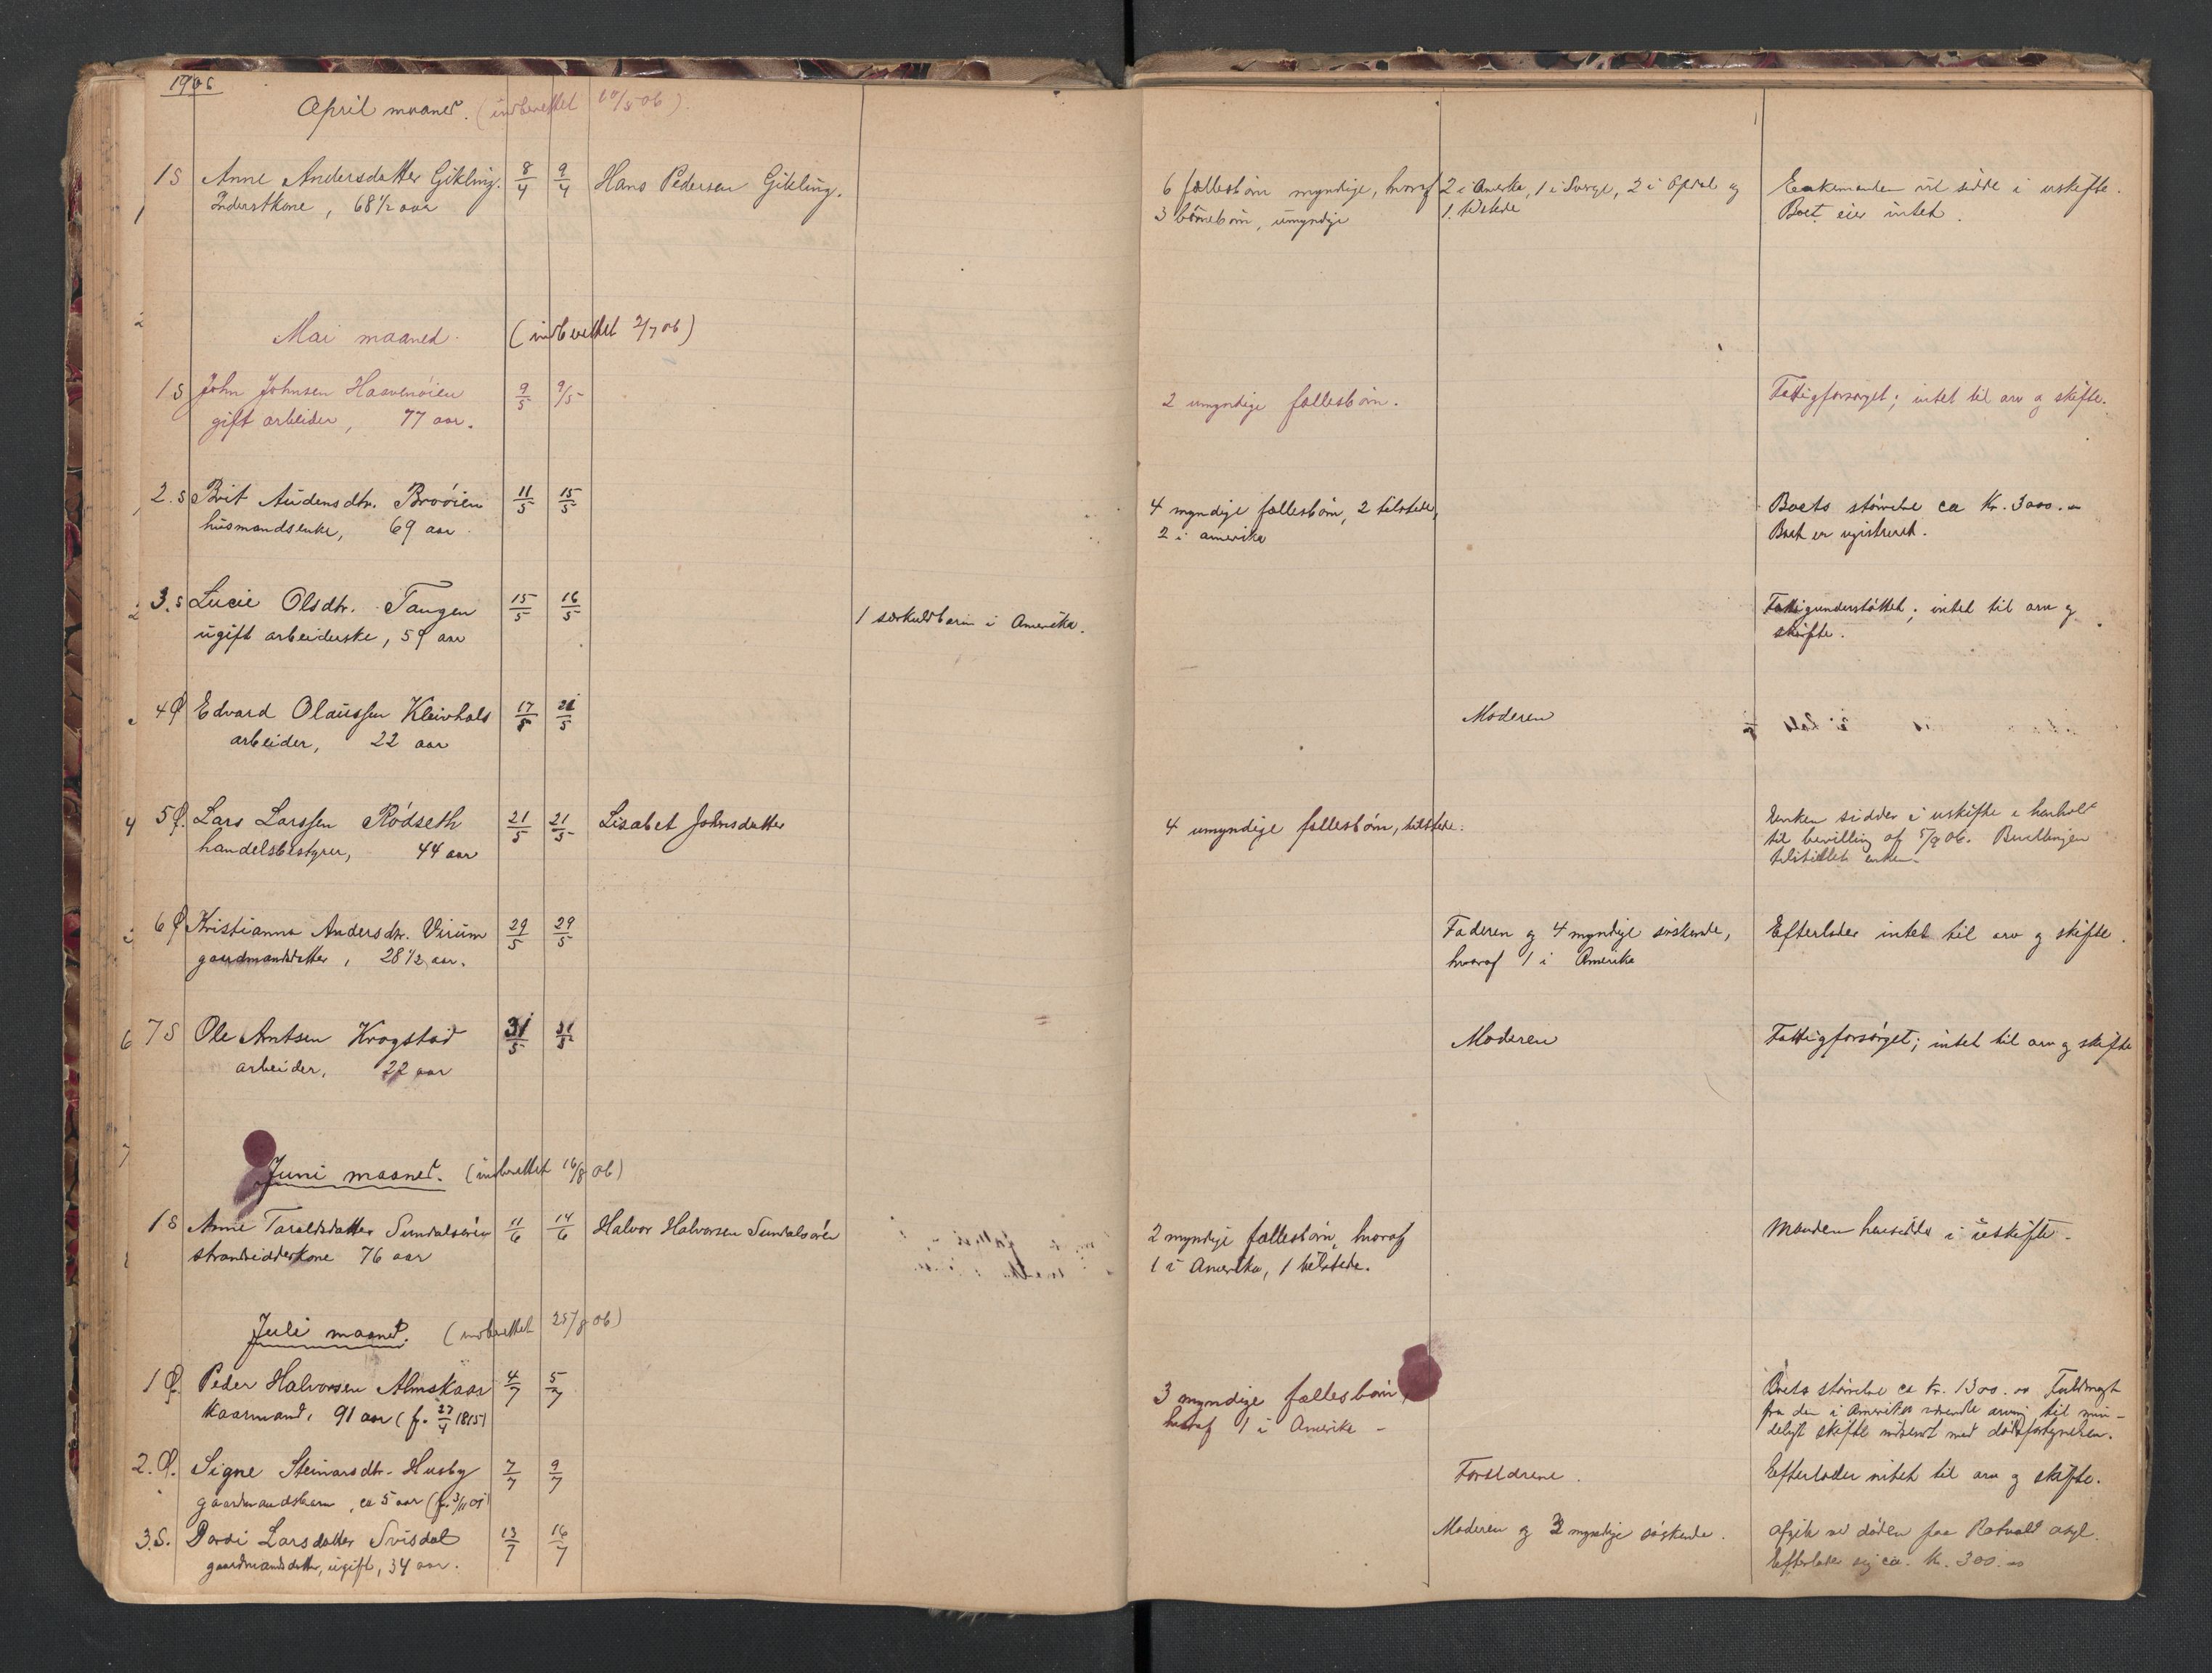 1906
April maaned. (indberettet 10/5 06).
1 S Anne Andersdatter Gikling. 8/4 9/4 Hans Pedersen Gikling. 6 fællesbørn myndige, hvoraf 2 i Amerika, 1 i Sverge, 2 i Opdal og Enkemanden vil sidde i uskifte.
Inderstkone, 68 1/2 aar 3 børnebørn, umyndige 1 tilstede Boet eier intet.
Mai maaned. (indberettet 2/7 06)
1 S John Johnsen Haavenøien 9/5 9/5 2 umyndige fællesbørn. Fattigforsørget; intet til arv og skifte.
gift arbeider, 77 aar.
2. S Brit Audensdtr. Broøien 11/5 15/5 4 myndige fællesbørn, 2 tilstede, Boets størrelse ca Kr. 3000.00
husmandsenke, 69 aar. 2 i amerika Boet er registreret.
3. S Lucie Olsdtr. Tangen 15/5 16/5 1 særkuldbarn i Amerika. Fattigunderstøttet; intet til arv og
ugift arbeiderske, 59 aar skifte.
4 Ø Edvard Olaussen Kleivhals 17/5 21/5 Moderen
arbeider, 22 aar
5 Ø. Lars Larssen Rødseth 21/5 21/5 Lisabet Johnsdatter 4 umyndige fællesbørn, tilstede. Enken sidder i uskifte i henhold
handelsbestyrer, 44 aar til bevilling af 5/9 06. Bevillingen
tilstillet enken.
6 Ø Kristianna Andersdtr. Virum 29/5 29/5 Faderen og 4 myndige søskende, Efterlader intet til arv og skifte.
gaardmandsdatter, 28 1/2 aar. hvoraf 1 i Amerika
7 S Ole Arntsen Krogstad 31/5 31/5 Moderen Fattigforsørget; intet til arv og skifte
arbeider, 22 aar
Juni maaned. (indberettet 16/8 06)
1 S Anne Taraldsdatter Sundalsøren 11/6 14/6 Halvor Halvorsen Sundalsøren 2 myndige fællesbørn, hvoraf Manden hensidder i uskifte.
strandsidderkone 76 aar 1 i Amerika, 1 tilstede.
Juli maaned. (indberettet 25/8 06)
1 Ø. Peder Halvorsen Almskaar 4/7 5/7 3 myndige fællesbørn, Boets størrelse ca Kr. 1300.00 Fuldmagt
Kaarmand, 91 aar (f. 27/4 1815) hvoraf 1 i Amerika fra den i Amerika værende arving til min-
deligt skifte indsendt med dødsfortegnelsen.
2. Ø. Signe Steinarsdtr. Husby 7/7 9/7 Forældrene. Efterlader intet til arv og skifte.
gaardmandsbarn, ca 5 aar (f. 3/11 01)
3. S. Dordi Larsdatter Svisdal 13/7 16/7 Moderen og 2 myndige søskende. Afgik ved døden paa Rotvold asyl.
gaardmandsdatter, ugift, 34 aar. Efterlader sig ca. Kr. 300.00